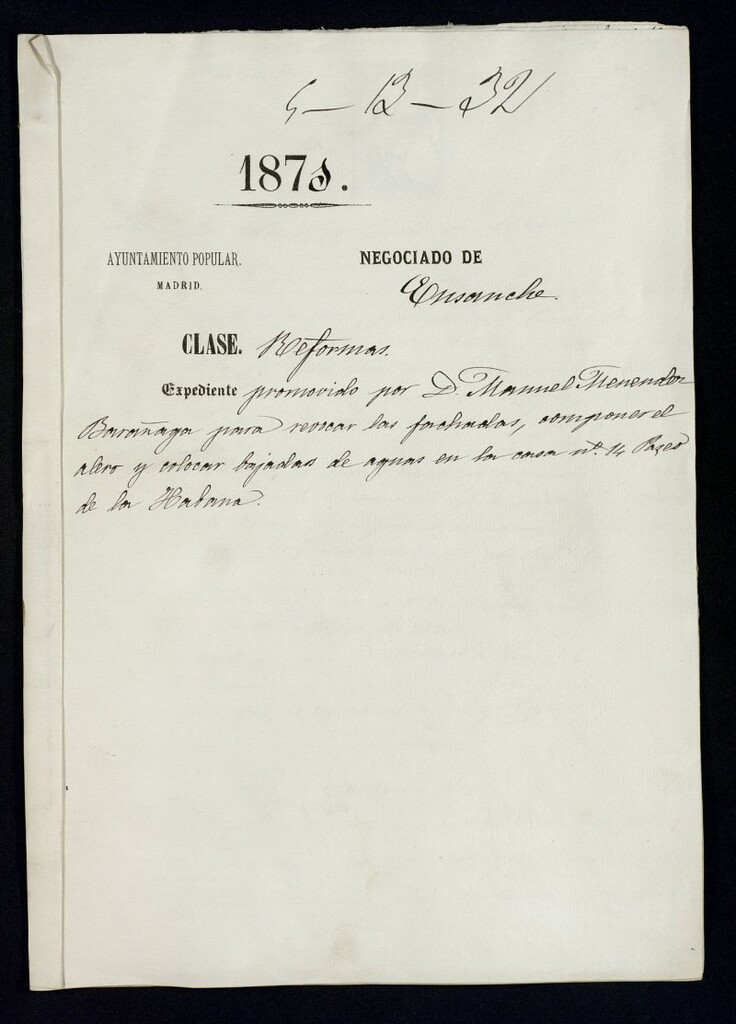 5-13-32
187
AYUNTAMIENTO POPULAR.
MADRID.
NEGOCIADO DE
Ensanche.
CLASE. Reformas.
Expediente promovido por D. Manuel Menendez
Barañaga para revocar las fachadas, componer el
alero y colocar bajadas de aguas en la casa nº. 14 Paseo
de la Habana.